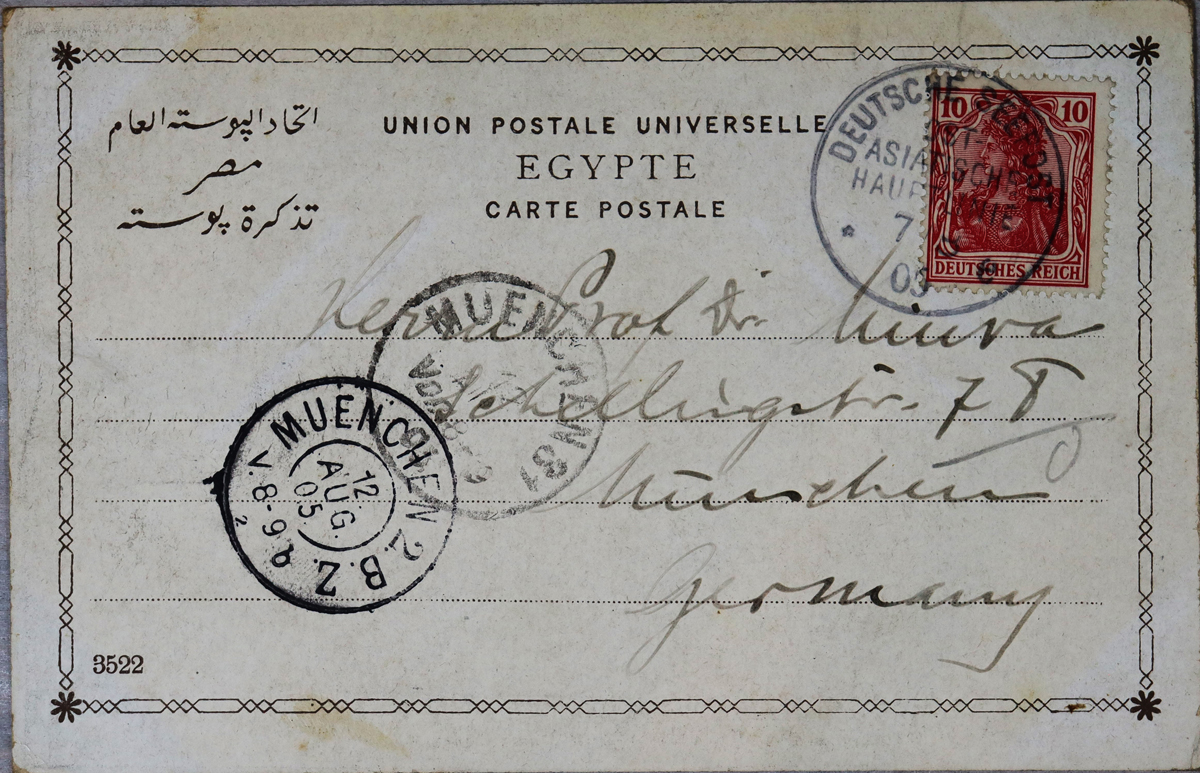 اتحاد البوسته العام
مصر
تذكرة بوسته
UNION POSTALE UNIVERSELLE
EGYPTE
CARTE POSTALE
10 10
DEUTSCHES REICH
DEUTSCHE SEEPOST
OST-
ASIATISCHE
HAUPTLINIE
7
05
Herrn Prof Dr.
Schellingstr. 7
München
Germany
MUENCHEN 31
MUENCHEN 2. B.Z.
12.
AUG.
05.
V 8-9
3522